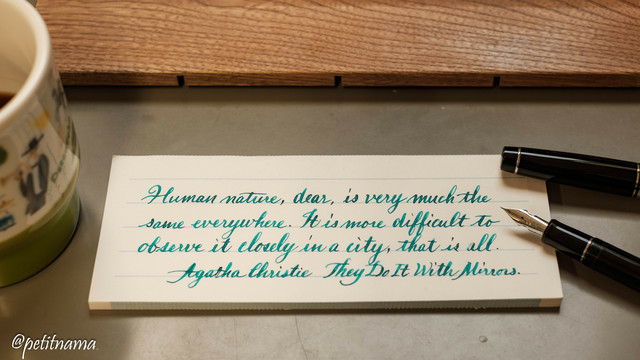 Human nature, dear, is very much the
same everywhere. It is more difficult to
observe it closely in a city, that is all.
Agatha Christie They Do It With Mirrors.
@petitnama